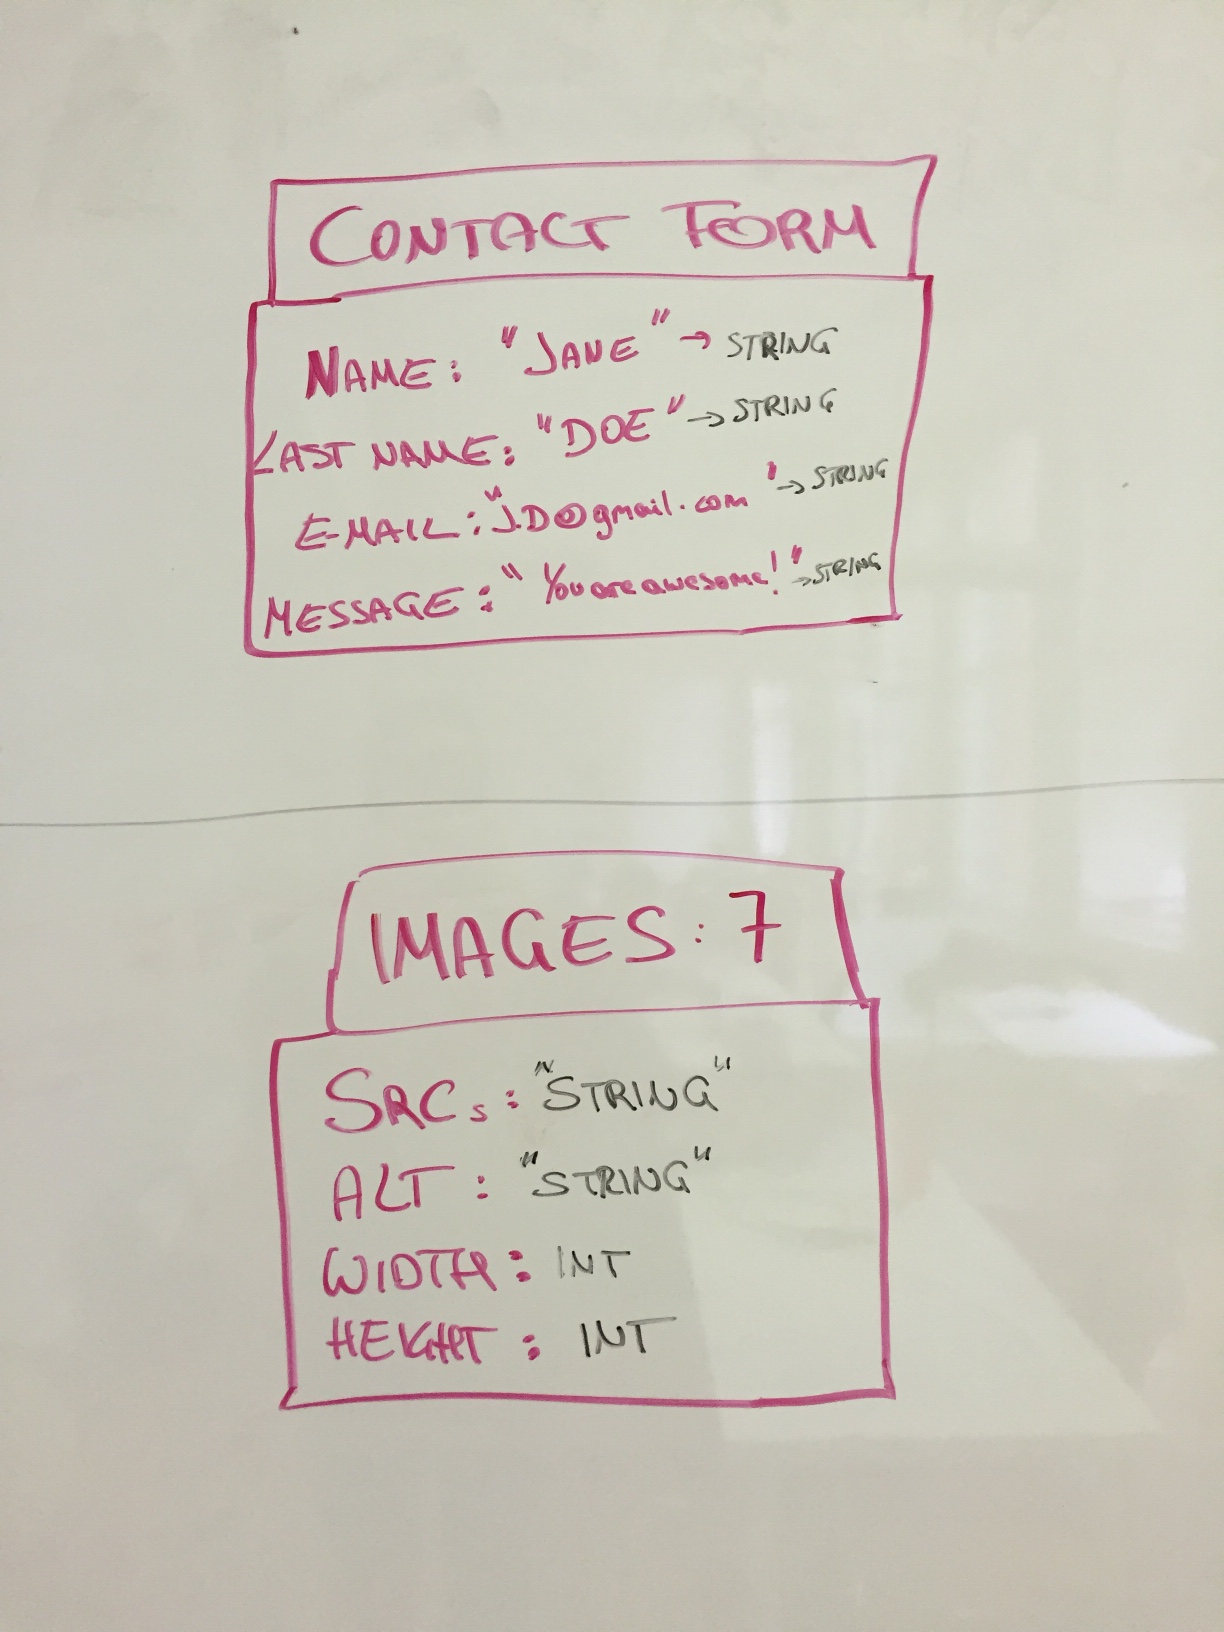 CONTACT FORM
NAME: "JANE" → STRING
LAST NAME: "DOE" → STRING
E-MAIL: "J.D@gmail.com" → STRING
MESSAGE: "You are awesome!" → STRING
IMAGES: 7
SRCs: "STRING"
ALT: "STRING"
WIDTH: INT
HEIGHT: INT